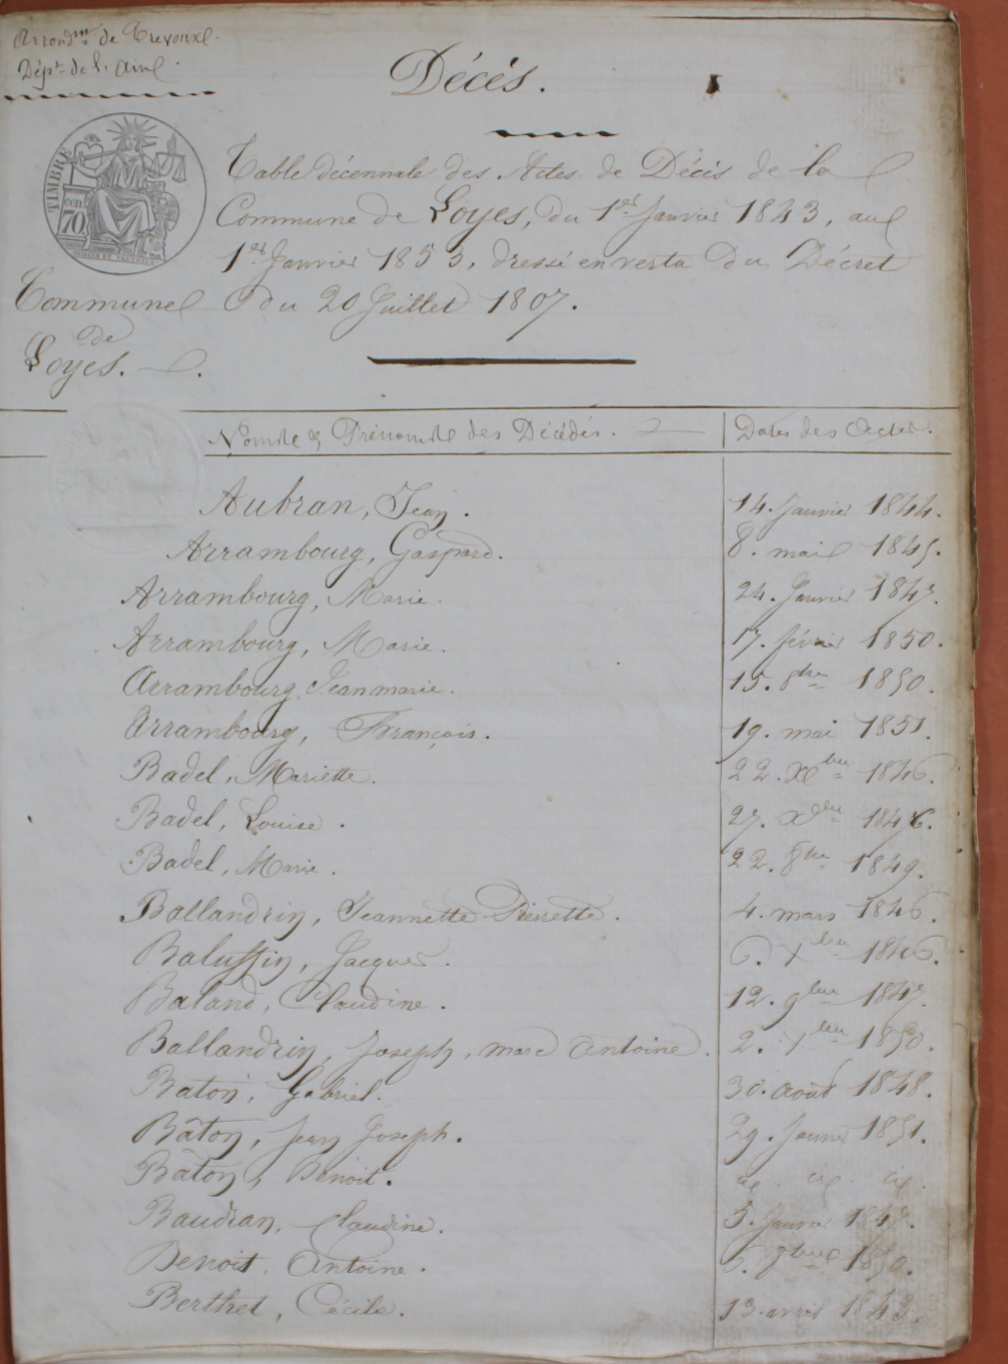 Arrondnt de Trevoux
Dépt de l'Ain
Décès.
TIMBRE
cen.
70
Table décennale des Actes de Décès de la
Commune de Loyes, du 1er Janvier 1843, au
1er Janvier 1853, dressé en vertu du Décret
du 20 Juillet 1807.
Commune
de
Loyes.
Noms & Prénoms des Décédés. Dates des Actes.
Aubran, Jean. 14. Janvier 1844.
Arrambourg, Gaspard. 8. mai 1845.
Arrambourg, Marie. 24. Janvier 1847.
Arrambourg, Marie. 17. février 1850.
Arrambourg, Jean marie. 15. 8bre 1850.
Arrambourg, François. 19. mai 1851.
Badel, Mariette. 22. Xbre 1846.
Badel, Louise. 27. Xbre 1846.
Badel, Marie. 22. 8bre 1849.
Ballandrin, Jeannette Pierrette. 4. mars 1846.
Balussin, Jacques. 6. Xbre 1846.
Baland, Claudine. 12. 9bre 1847.
Ballandrin, Joseph, marc Antoine. 2. Xbre 1850.
Baton, Gabriel. 30. août 1848.
Bâton, Jean Joseph. 29. Janvier 1851.
Bâton, Benoit.
Baudran, Claudine. 5. Janvier
Benoit, Antoine. 1850.
Berthet, Cécile. 13. avril 1843.